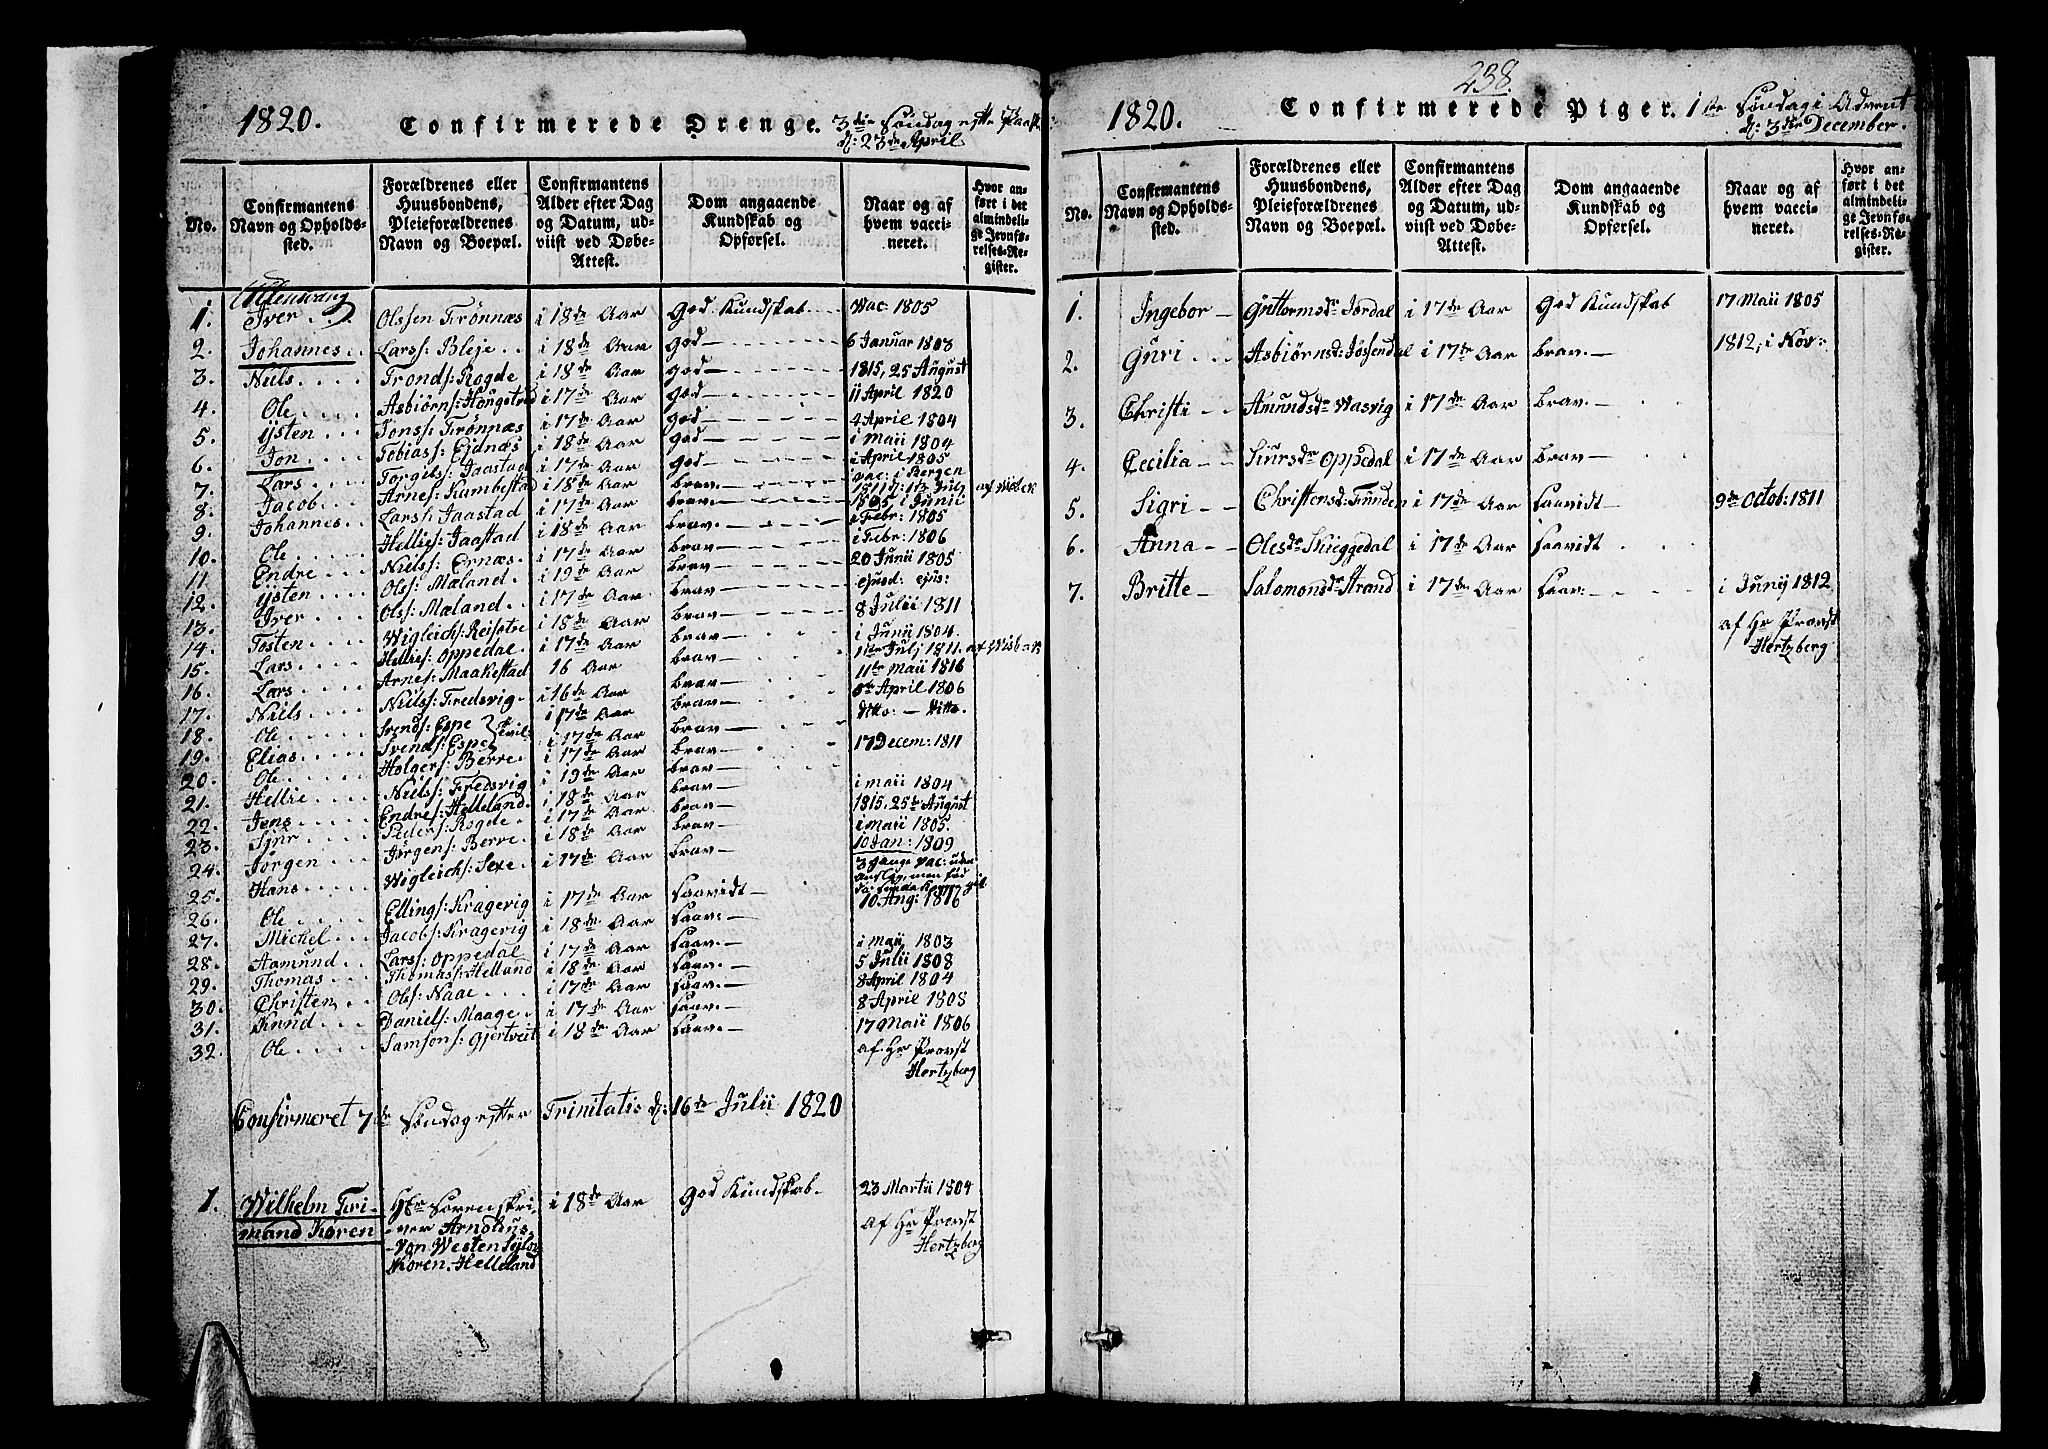 1820. Confirmerede Drenge. 3die Søndag efter Paaske
d: 23de April
No.
Confirmantens Navn og Opholdssted.
Forældrenes eller Huusbondens, Pleieforældrenes Navn og Boepæl.
Confirmantens Alder efter Dag og Datum, udviist ved Døbe-Attest.
Dom angaaende Kundskab og Opførsel.
Naar og af hvem vaccineret.
Hvor anført i det almindelige Jevnførelses-Register.
Ullensvang
1. Iver Olssen Trønnæs i 18de Aar God Kundskab Vac 1805
2. Johannes Larss: Bleje i 18de Aar God 6 Januar 1803
3. Niels Tronds: Rogde i 18de Aar God 1815, 25 August
4. Ole Asbiørns: i 17de Aar God 11 April 1820
5. Ysten Jonss: Trønnæs i 17de Aar God 4 April 1804
6. Jon Tobiass: Ejdnæs i 18de Aar God i Maii 1804
7. Lars Torgils: Jaastad i 17de Aar God i April 1805
8. Jacob Arnes: Kambestad i 18de Aar brav vac: i Bergen 1811 af Wiesener
9. Johannes Larss: Jaastad i 17de Aar brav 1805 i Junii
10. Ole Hellies: Jaastad i 18de Aar brav i Febr: 1805
11. Endre Nielss: Ernæs i 17de Aar brav i Febr: 1806
12. Ysten Olss: Mæland i 19de Aar brav 20 Junii 1805
13. Iver Olss: Mæland i 17de Aar brav ejusd: ejus:
14. Tosten Wigleichs: Reisæter i 18de Aar brav 8 Julii 1811
15. Lars Hellies: Oppedal i 17de Aar brav i Junii 1804
16. Lars Arnes: Maakestad 16 Aar brav 1ste Julj 1811.
17. Niels Nielss: Fredsvig i 16de Aar brav 11te Maii 1816
18. Ole Svends: Espe i 17de Aar brav April 1806
19. Elias Svends: Espe i 17de Aar brav ditto — ditto
20. Ole Holgers: Berre i 17de Aar brav 17 Decem: 1811
21. Hellie Nielss: Fredsvig i 19de Aar brav i Maii 1804
22. Jens Endres: Helleland i 18de Aar brav 1815, 25de August
23. Siur Peders: Rogde i 17de Aar brav i Maii 1805.
24. Jørgen Jørgens: Berre i 18de Aar brav 10 Jan: 1809
25. Hans Wigleichs: Sexe i 17de Aar brav 3 gange vac: uden Anslag, men
26. Ole Ellings: Kragevig i 17de Aar Saavidt 10 Aug: 1816
27. Michel Jacobs: Kragevig i 18de Aar Saav:
28. Aamund Larss: Oppedal i 17de Aar Saav: i Maij 1803
29. Thomas Thomass: Helland i 18de Aar Saav: 5 Julii 1808
30. Christen Olss: Naae i 17de Aar Saav: 8 April 1804
31. Knud Daniels: Maage i 17de Aar Saav: 8 April 1808
32. Ole Samsons: Gjertveit i 18de Aar Saav: 17 Maii 1806
af Hr Provst
Hertzberg
Confirmeret 7de Søndag efter Trinitatis d: 16de Julii 1820
1. Wilhelm Fri- Hr Sorenskri- i 18de Aar God Kundskab. 23 Martii 1804
mand Koren ver Arnoldus af Hr Provst
Von Westen Sylow Hertzberg
Koren. Helleland
238.
1820. Confirmerede Piger. 1ste Søndag i Advent
d: 3die December.
No.
Confirmantens Navn og Opholdssted.
Forældrenes eller Huusbondens, Pleieforældrenes Navn og Boepæl.
Confirmantens Alder efter Dag og Datum, udviist ved Døbe-Attest.
Dom angaaende Kundskab og Opførsel.
Naar og af hvem vaccineret.
Hvor anført i det almindelige Jevnførelses-Register.
1. Ingebor Guttormsdr Jordal i 17de Aar God Kundskab 17 Maii 1805
2. Guri Asbiørnsd: Jøsendal i 17de Aar brav. 1812, i Nov:
3. Christi Amundsdr Wasvig i 17de Aar brav.
4. Cecilia Siursdr Oppedal i 17de Aar brav
5. Sigri Christensd: Tunden i 17de Aar Saavidt 9de Octob: 1811
6. Anna Olesdr Skieggedal i 17de Aar Saavidt
7. Britte Salomonsdr Strand i 17de Aar Saav: i Junij 1812
af Hr Provst
Hertzberg